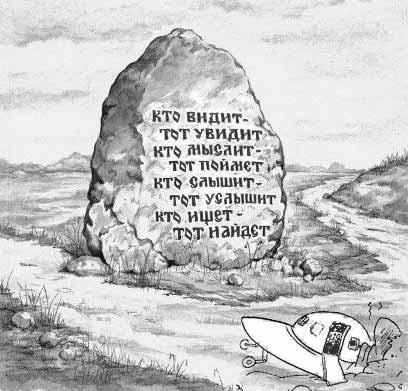 КТО ВИДИТ-
ТОТ УВИДИТ
КТО МЫСЛИТ-
ТОТ ПОЙМЕТ
КТО СЛЫШИТ-
ТОТ УСЛЫШИТ
КТО ИЩЕТ-
ТОТ НАЙДЕТ